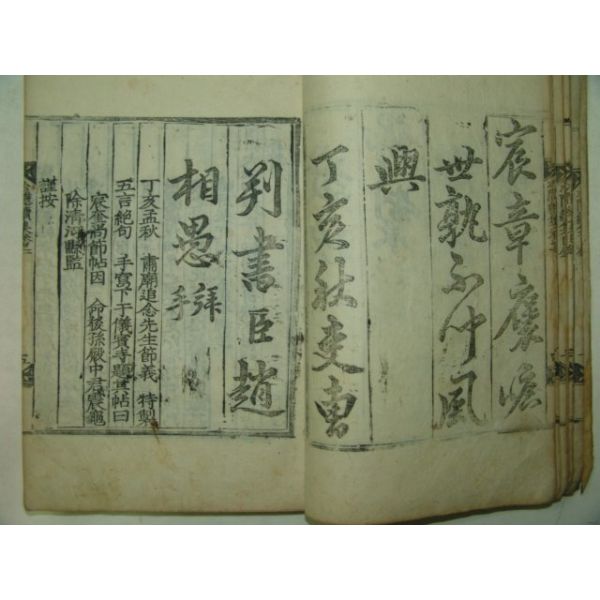 宸章褒崇
世孰不聞風
興
丁亥秋吏曹
判書臣趙
相愚拜
手
丁亥孟秋 肅廟追念先生節義 特製
五言絶句 手寫下于儀賓寺題其帖曰
宸奎高節帖因 命後孫殿中君
除清河縣監
謹按